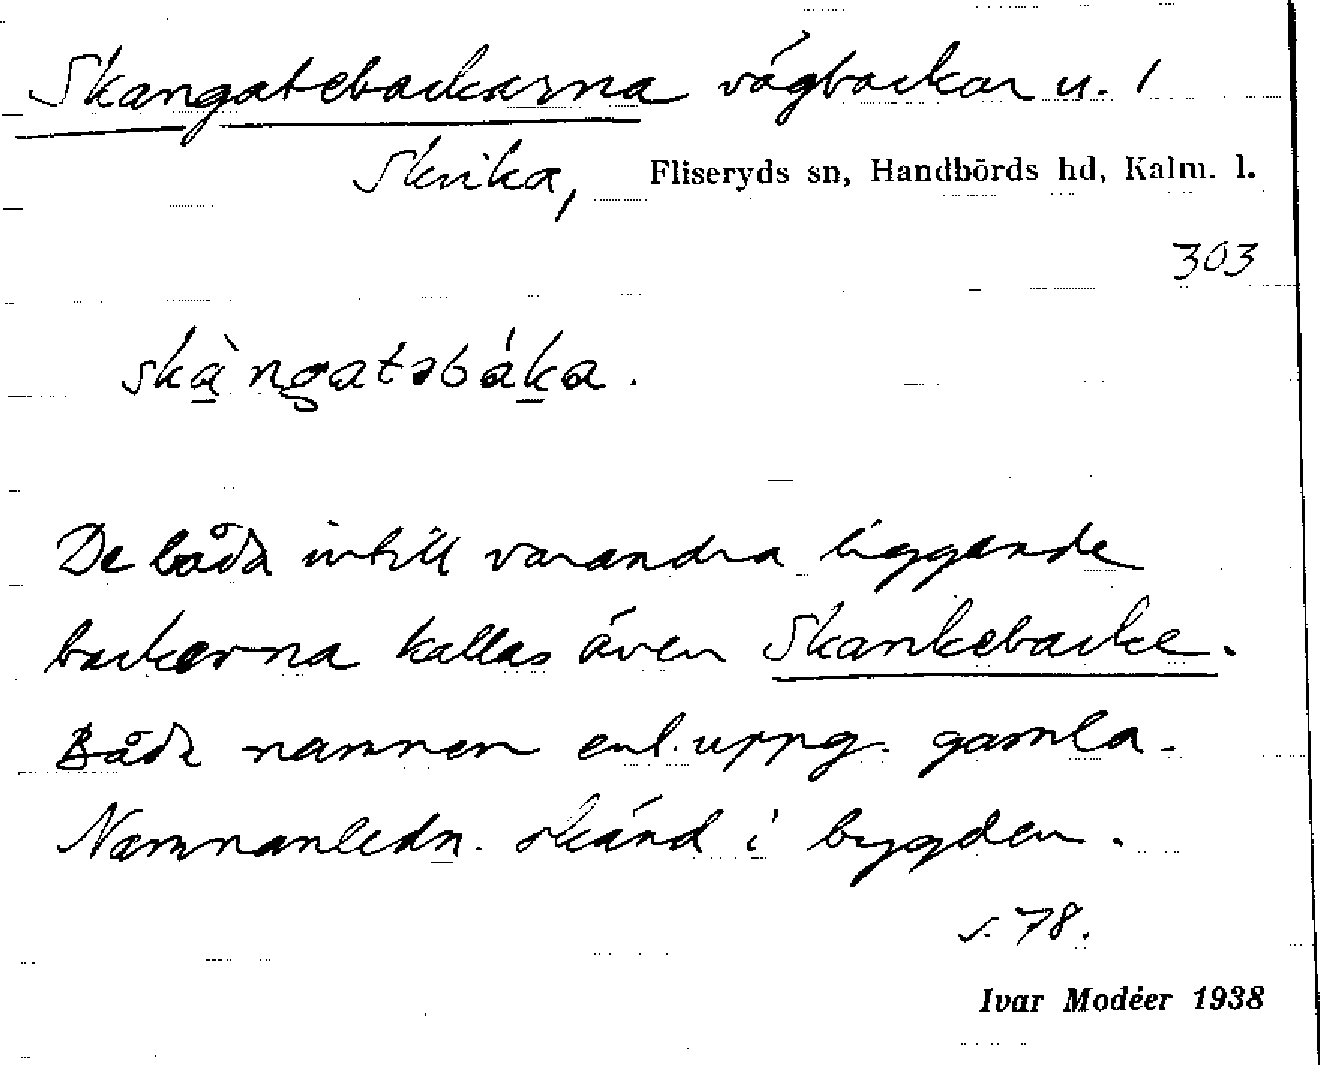 Skangatebackarna vägbackar u. 1
Skrika, Fliseryds sn, Handbörds hd, Kalm. l.
303
skàngatəbáka.
De båda intill varandra liggande
backarna kallas även Skankebacke.
Båda namnen enl. uppg. gamla.
Namnanledn. okänd i bygden.
s. 78.
Ivar Modéer 1938